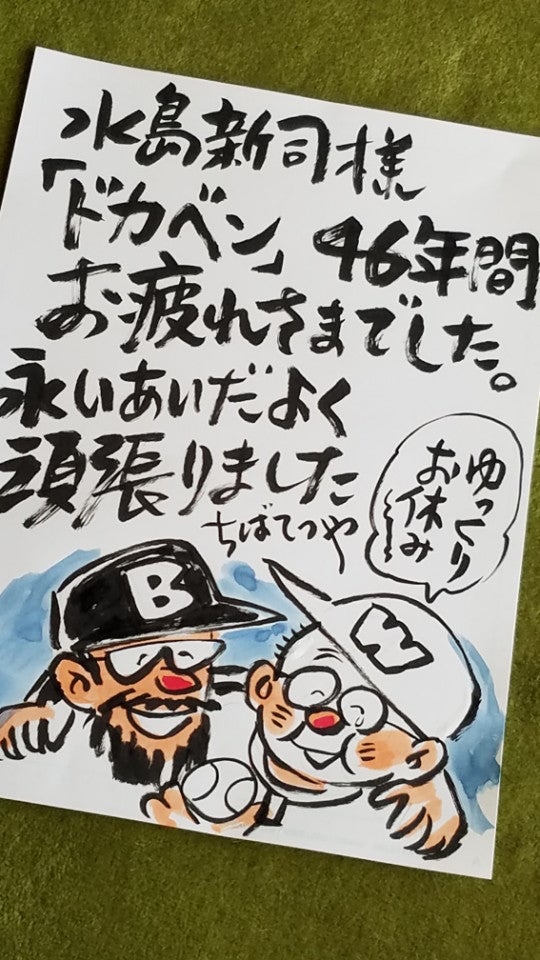 水島新司様
「ドカベン」46年間
お疲れさまでした。
永いあいだよく
頑張りました
ちばてつや
ゆっくり
お休み
B